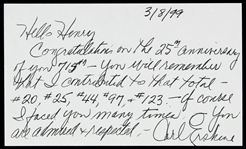 3/8/99
Hello Henry
Congratulations on the 25th anniversary
of your 715th - You will remember
that I contributed to that total -
#20, #25, #44, #97, + #123. - Of course
I faced you many times. You
are admired & respected. - Carl Erskine